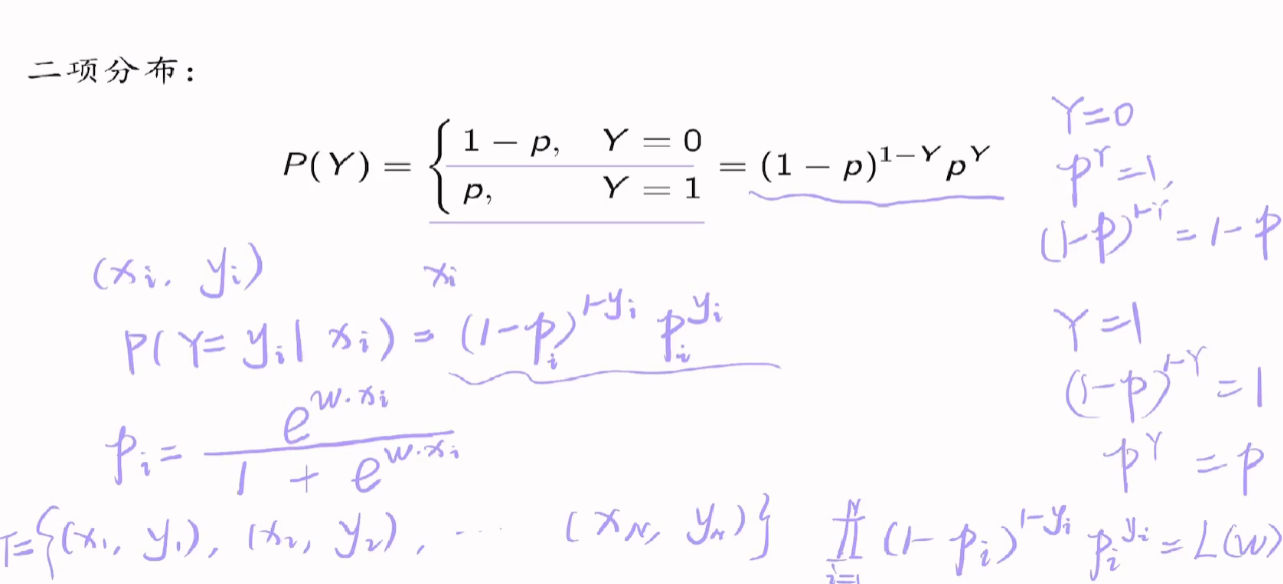 二项分布:
P(Y) = { 1 − p, Y = 0
p, Y = 1 = (1 − p)^{1−Y} p^Y
Y=0
p^Y=1,
(1-p)^{1-Y} = 1-p
(xi, yi)
xi
P(Y=yi|xi) = (1-pi)^{1-yi} pi^{yi}
Y=1
(1-p)^{1-Y} = 1
p^Y = p
pi = e^{w·xi} / 1 + e^{w·xi}
T={(x1, y1), (x2, y2), ... (xN, yN)}
∏_{i=1}^{N} (1-pi)^{1-yi} pi^{yi} = L(w)